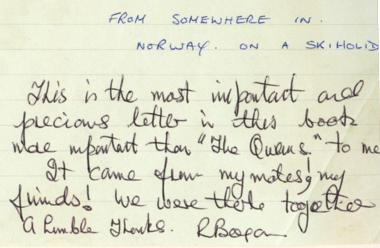 FROM SOMEWHERE IN.
NORWAY. ON A SKIHOLID
This is the most important and
precious letter in this book
more important than "The Queens" to me
It came from my mates! my
friends! We were there together
A humble Thanks.